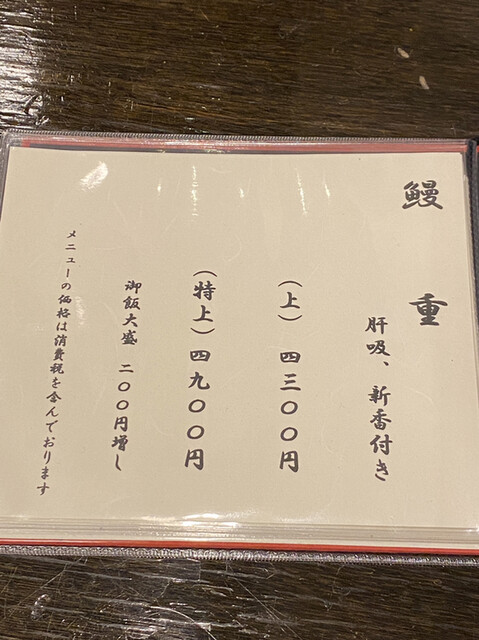 鰻重
肝吸、新香付き
(上) 四三〇〇円
(特上) 四九〇〇円
御飯大盛 二〇〇円増し
メニューの価格は消費税を含んでおります